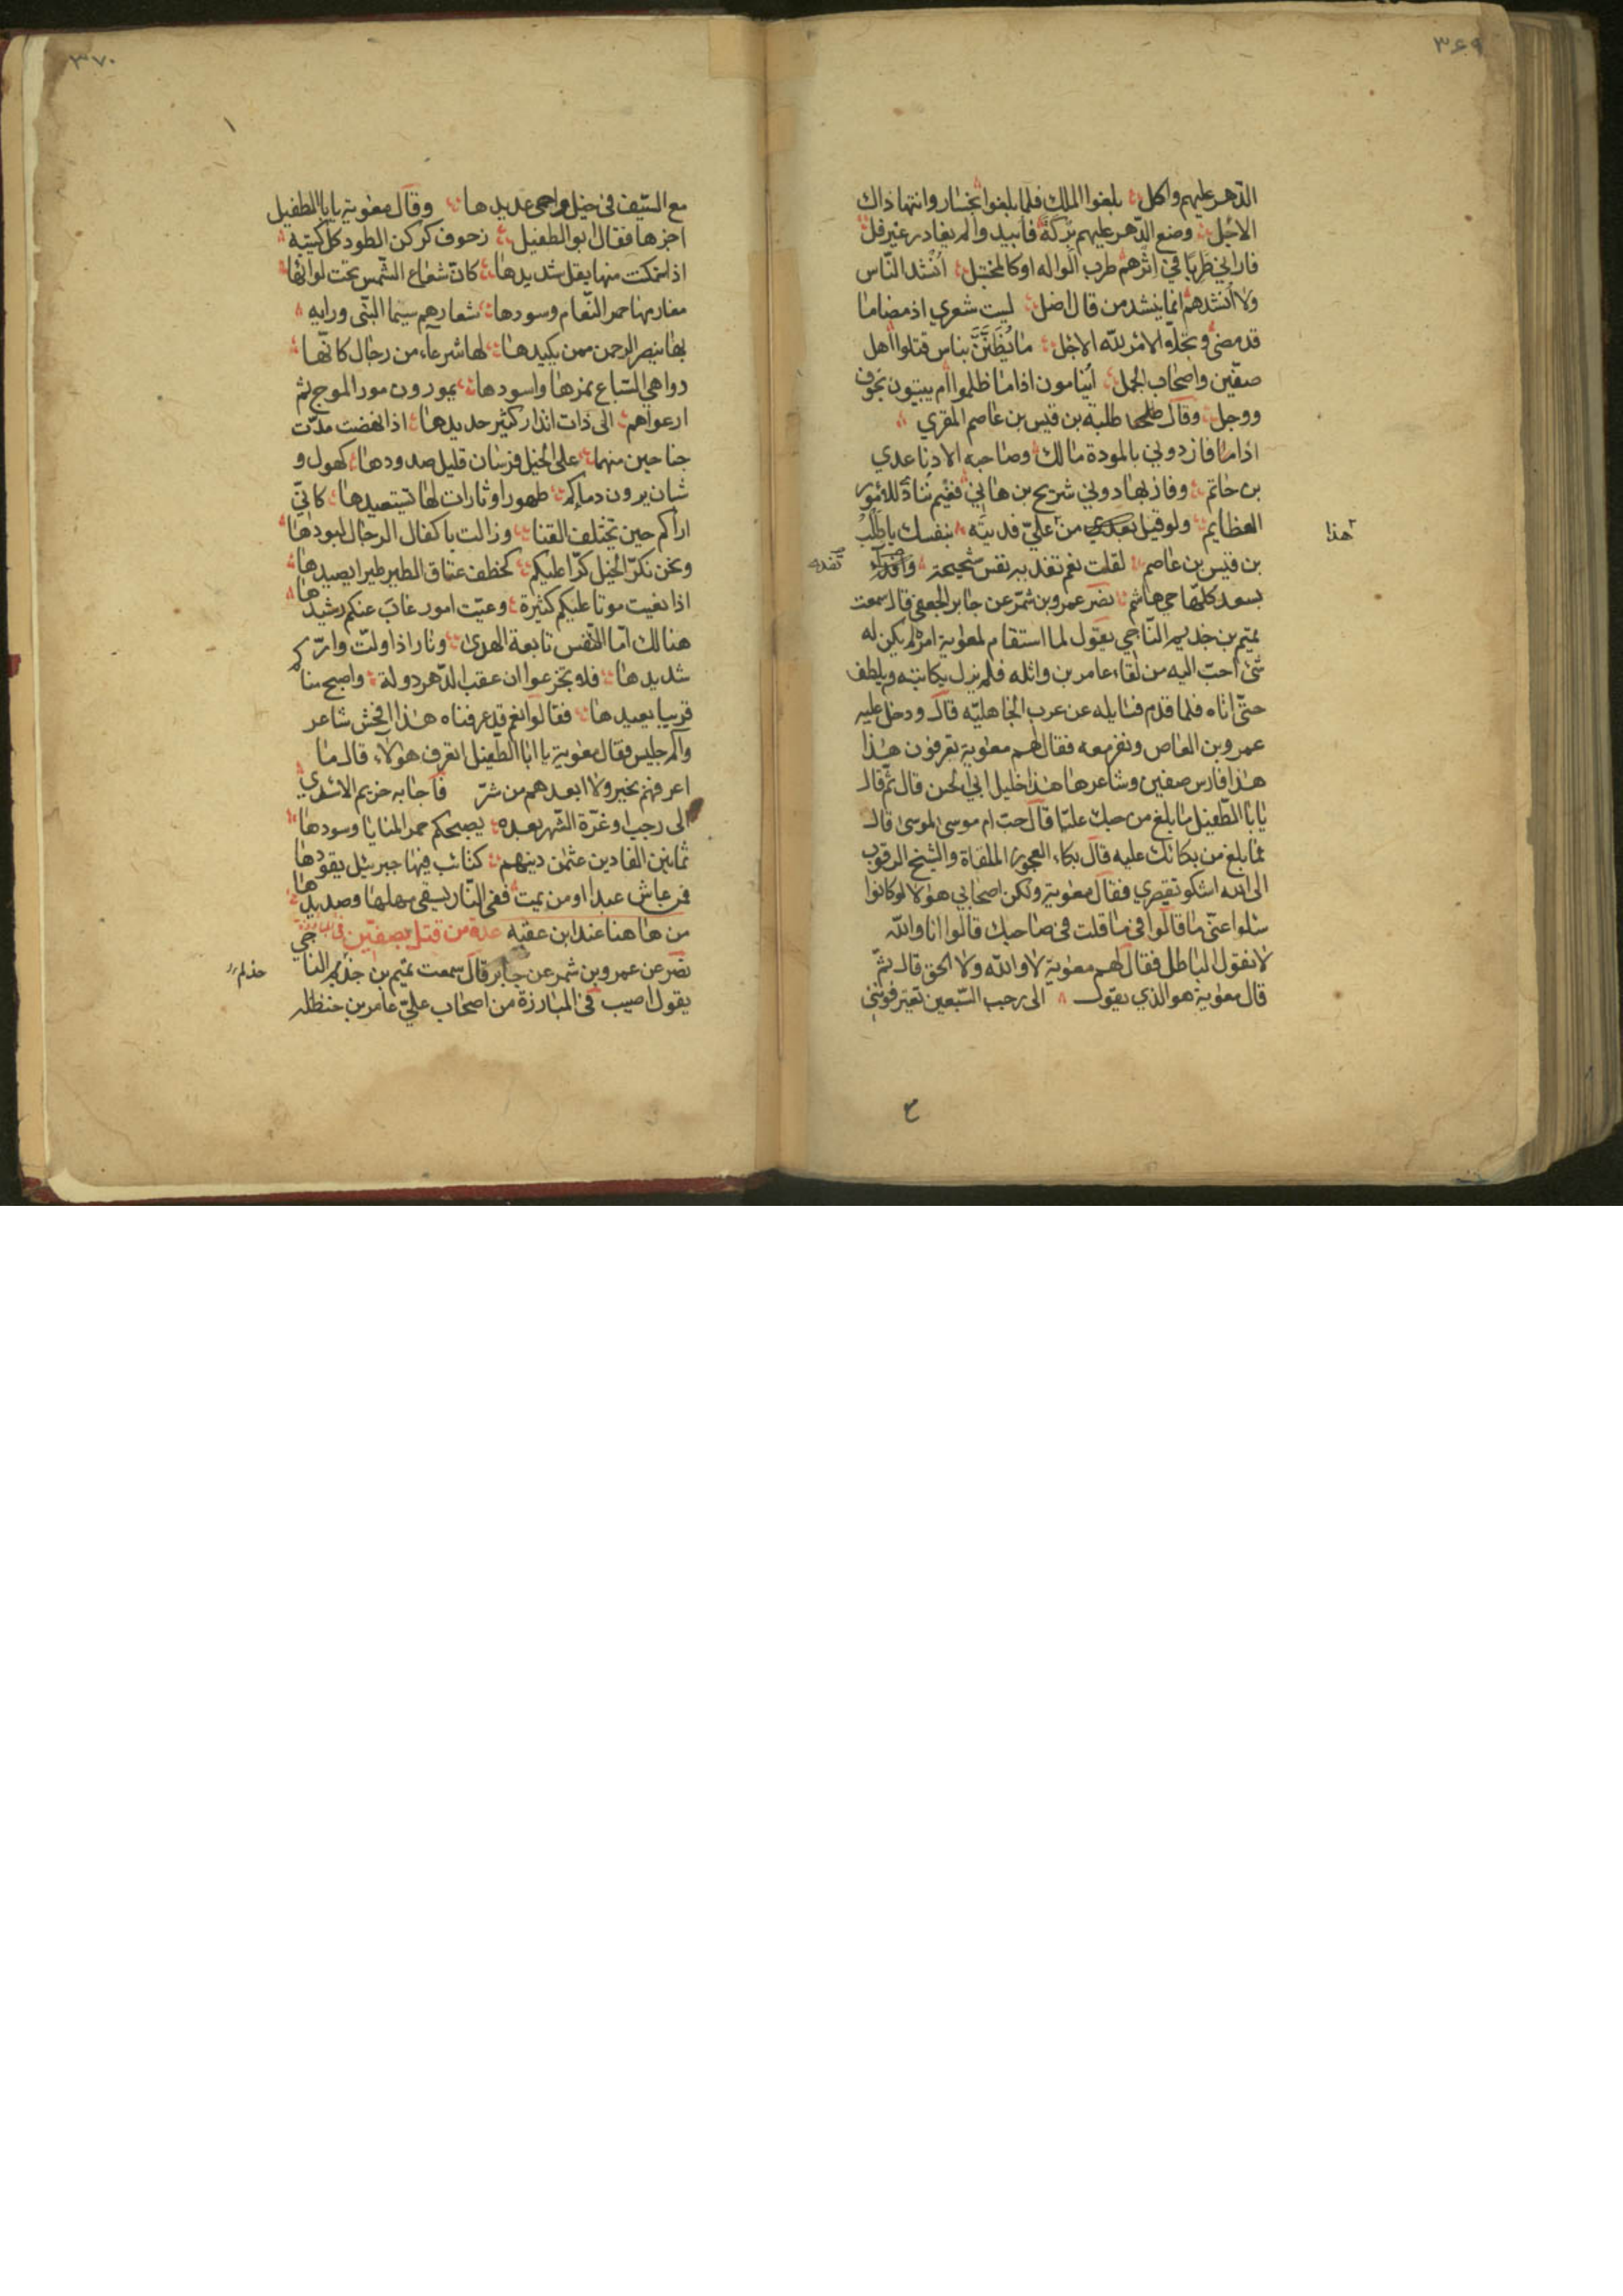 ٣٦٩
الدّهر عليهم واكل بلغوا الملك فلما بلغوا بخسار وانتها ذاك
الاجل وضع الدّهر عليهم بركه فابيد والم يغادر غير فل
فاراني طربا في اثرهم طرب الواله او كالمختبل انشد النّاس
ولا انشدهم انما ينشد من قال اضل ليت شعري اذ مضا ما
قد مضى وتجلّا الامر لله الاجل ما يُظنَّنَّ بناس قتلوا اهل
صفّين واصحاب الجمل أينامون اذا ما ظلموا ام يبيتون بخوف
ووجل وقال طلبة بن قيس بن عاصم المقري
اذا ما فاز دوني بالمودة مالك وصاحبه الادنا عدي
بن حاتم وفاز بها دوني شريح بن هاني ففيم تنادّ للامور
العظايم ولو قيل من عليّ فديته بنفسك يا طلب
هذا
بن قيس بن عاصم لقلت نعم تفديه نفس شحيحة وافدى
تفدى
بسعد كلّها حي هاشم نصر عمرو بن شمّر عن جابر الجعفي قال سمعت
تميم بن خديم الناجي يقول لما استقام لمعوية امره لم يكن له
شئ احبّ اليه من لقاء عامر بن واثله فلم يزل يكاتبه ويلطف
حتّى اتاه فلما قدم فسايله عن عرب الجاهليّه قال ودخل عليه
عمرو بن العاص ونفر معه فقال لهم معوية تعرفون هذا
هذا فارس صفين وشاعرها هذا خليل ابي الحسن قال ثمّ قال
يابا الطّفيل ما بلغ من حبك عليّا قال حبّ ام موسى لموسى قال
فما بلغ من بكائك عليه قال بكاء العجوز المقلاة والشيخ الرقوب
الى الله اشكو تقصيري فقال معوية ولكن اصحابي هولا لو كانوا
سئلوا عنّي ما قالوا في ما قلت في صاحبك قالوا انا والله
لا نقول الباطل فقال لهم معوية لا والله ولا الحق قال ثمّ
قال معوية هو الذي يقول الى رجب السّبعين تعترفونني
٣٧٠
مع السّيف في خيل واحمى عديدها وقال معوية يابا الطفيل
اجزها فقال ابو الطفيل زحوف كركن الطود كل كتيبه
اذا تمكنت منها يقل شديدها كانّ شعاع الشّمس تحت لوائها
مغارمها حمر النّعام وسودها شعارهم سيما النبّى ورايه
بها ينصر الرحمن ممن يكيدها لها شرعاء من رجال كانّها
دواهي السّباع نمرها واسودها يمورون مور الموج ثم
ارعواهم الى ذات انداز كثير حديدها اذا نهضت مدّت
جناحين منهما على الخيل فرسان قليل صدودها كهول و
شبان يرون دماءكم طهورا وثارات لها تستعيدها كانّي
اراكم حين تختلف القنا وزالت باكفال الرجال لبودها
ونحن نكرّ الخيل كرّا عليكم كخطف عتاق الطير طيرا يصيدها
اذا نعيت موتا عليكم كثيرة وعيّت امور غاب عنكم رشيدها
هنالك امّا النّفس تابعة الهدى ونار اذا ولت وارّكم
شديدها فلا تجزعوا ان عقب الدّهر دولة واصبح منا
قريبا بعيدها فقالوا نعم قد عرفناه هذا افحش شاعر
والم جليس فقال معوية يا ابا الطفيل اتعرف هولاء قال ما
اعرفهم بخير ولا ابعدهم من شرّ فاجابه خزيم الاسدي
الى رجب او غرّة الشّهر بعده يصبحكم حمر المنايا وسودها
ثمانين الفا دين عثمن دينهم كتائب فيها جبرئيل يقودها
فمن عاش عبدا ومن يمت ففى النّار يسقى مهلها وصديدها
من ها هنا عند ابن عقبه عدة من قتل بصفّين
نصر عن عمرو بن شمر عن جابر قال سمعت تميم بن حذيم الناجي
حذلم
يقول اصيب في المبارزة من اصحاب عليّ عامر بن حنظلة